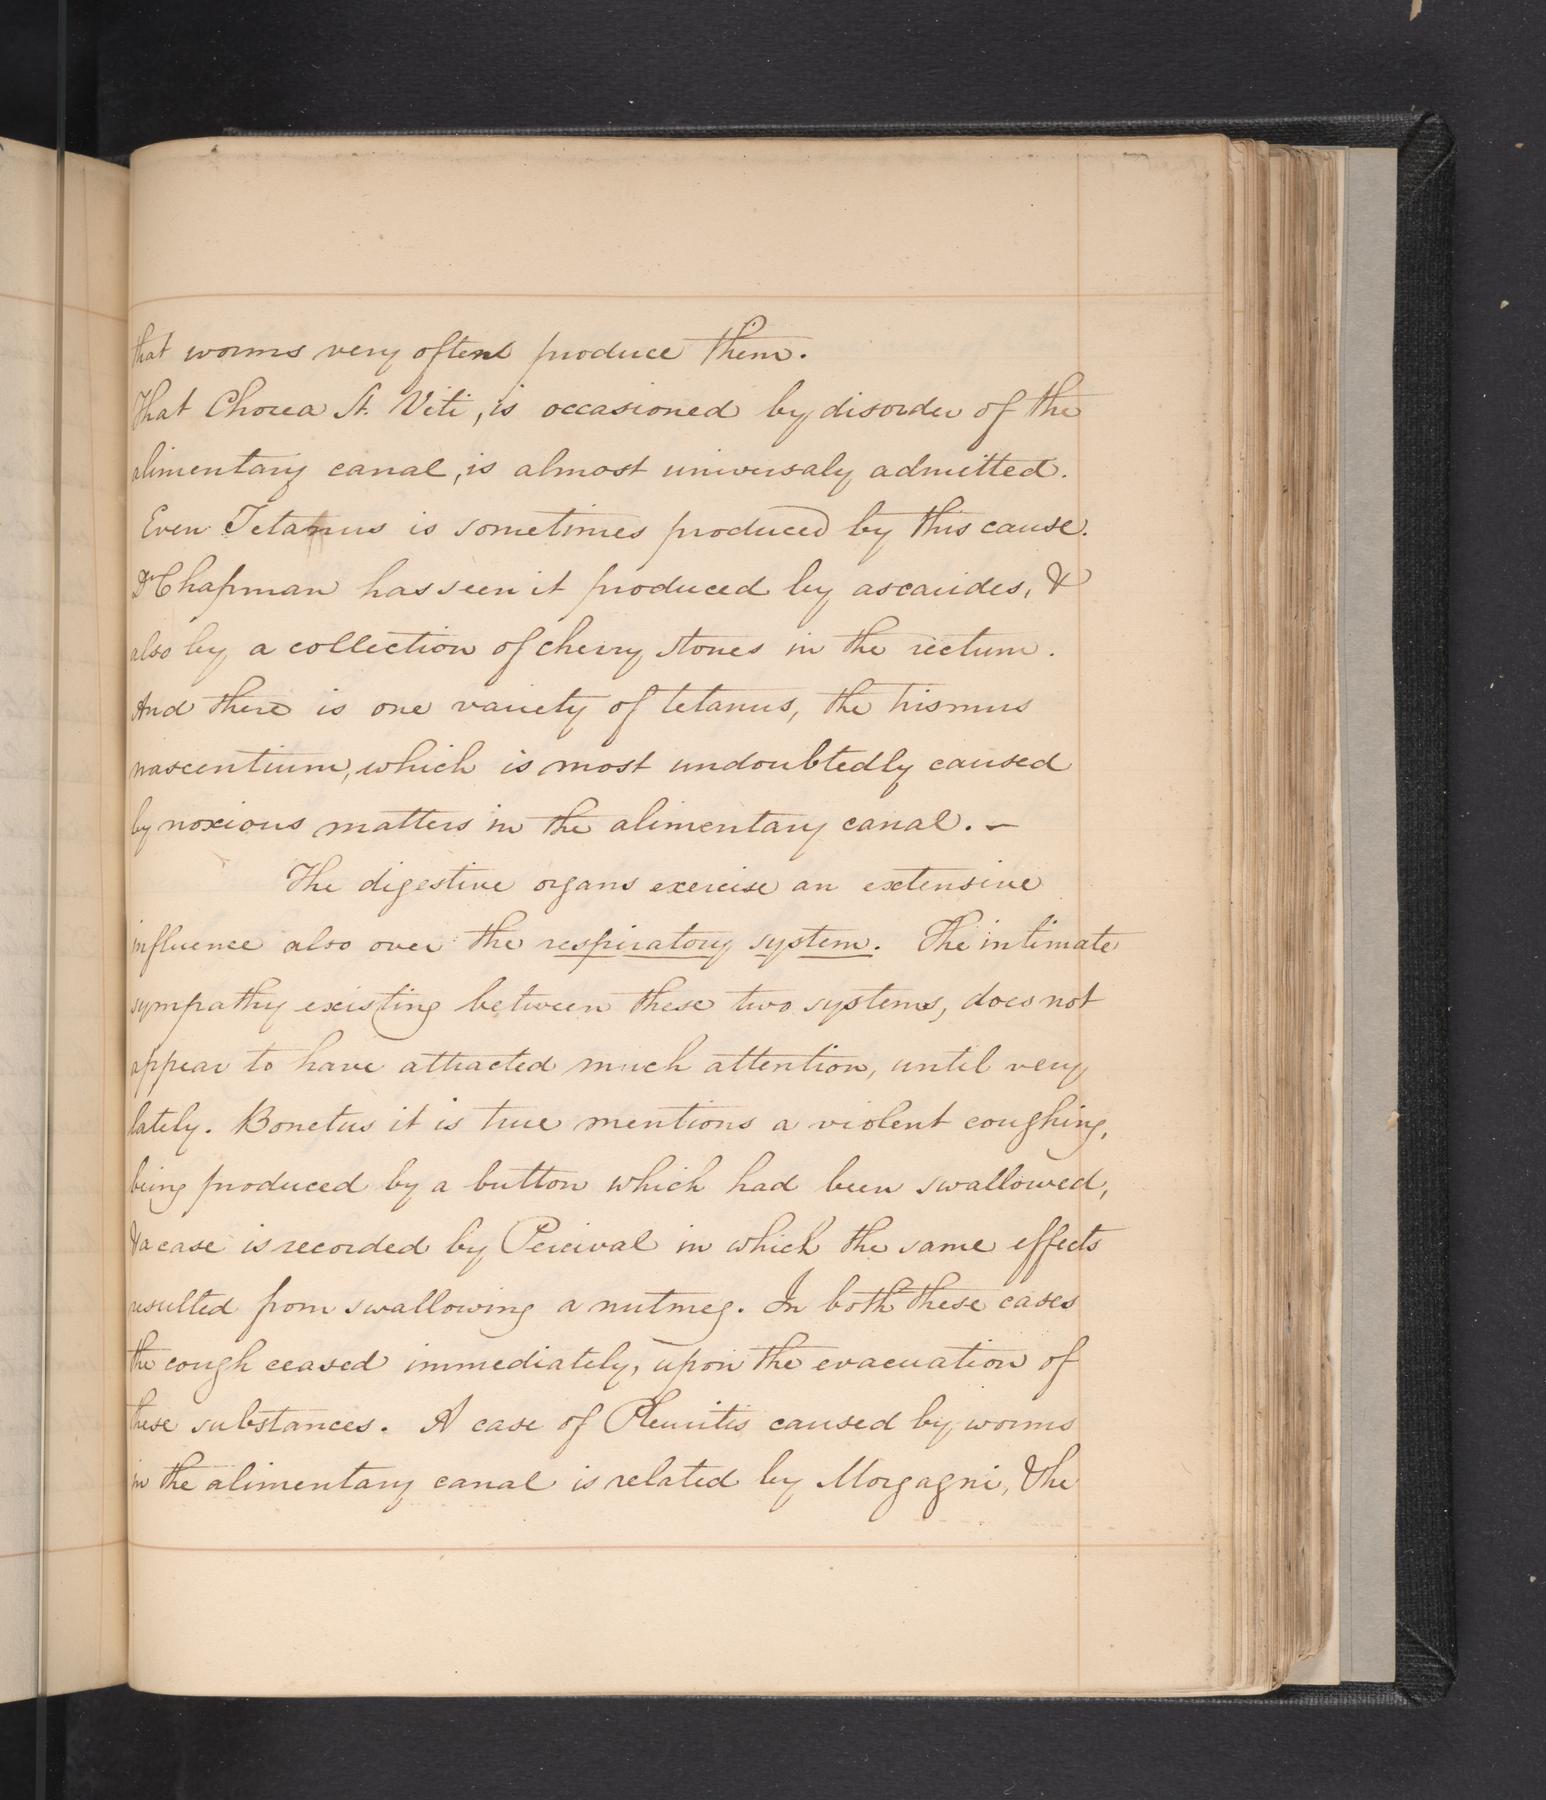 that worms very often produce them.
That Chorea St. Viti, is occasioned by disorder of the
alimentary canal, is almost universaly admitted.
Even Tetanus is sometimes produced by this cause.
Dr Chapman has seen it produced by ascarides, &
also by a collection of cherry stones in the rectum.
And there is one variety of tetanus, the trismus
nascentium, which is most undoubtedly caused
by noxious matters in the alimentary canal. —
The digestive organs exercise an extensive
influence also over the respiratory system. The intimate
sympathy existing between these two systems, does not
appear to have attracted much attention, until very
lately. Bonetus it is true mentions a violent coughing,
being produced by a button which had been swallowed,
& a case is recorded by Percival in which the same effects
resulted from swallowing a nutmeg. In both these cases
the cough ceased immediately, upon the evacuation of
these substances. A case of Pleuritis caused by worms
in the alimentary canal is related by Morgagni, & the